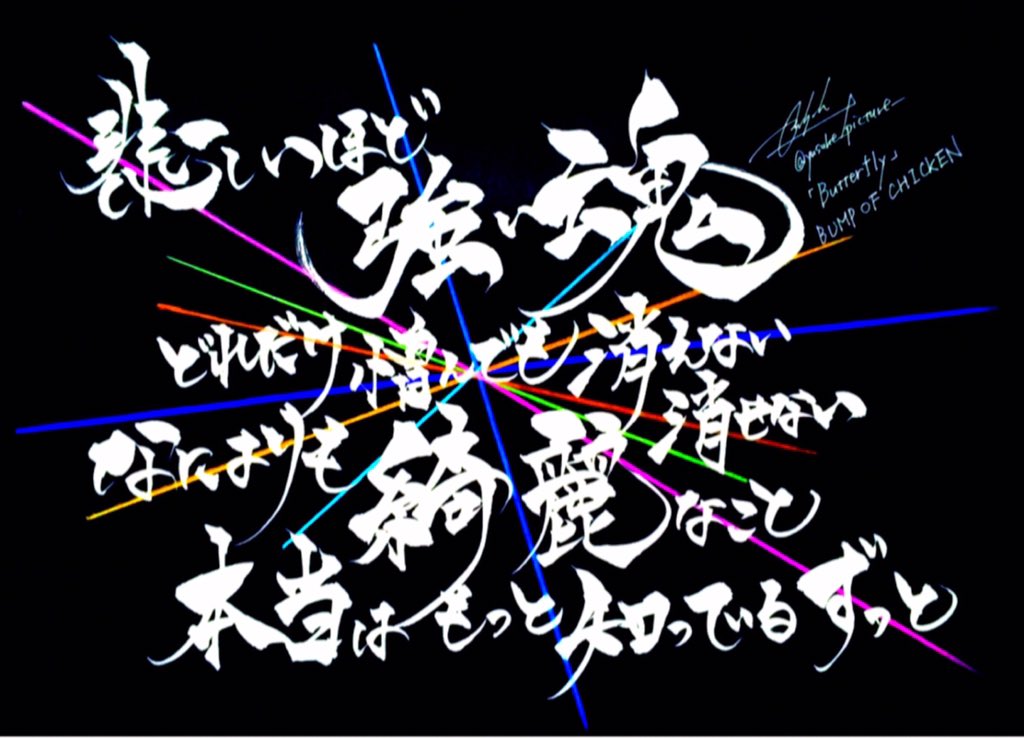 悲しいほど
強い魂
どれだけ憎んでも消えない
消せない
なによりも綺麗なこと
本当はもっと知っているずっと
@yusuke_picture_
「Butterfly」
BUMP OF CHICKEN